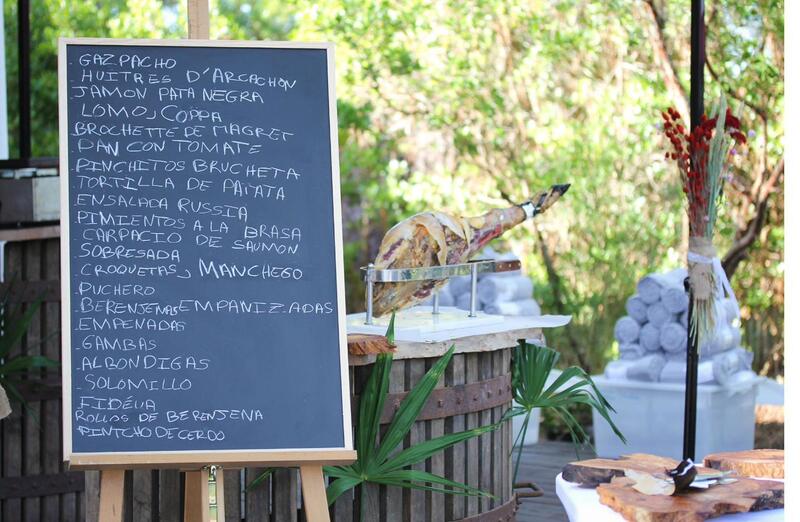 GAZPACHO
HUITRES D'ARCACHON
JAMON PATA NEGRA
LOMO, COPPA
BROCHETTE DE MAGRET
PAN CON TOMATE
PINCHITOS BRUCHETA
TORTILLA DE PATATA
ENSALADA RUSSIA
PIMIENTOS A LA BRASA
CARPACIO DE SAUMON
SOBRESADA
CROQUETAS, MANCHEGO
PUCHERO
BERENJENAS EMPANIZADAS
EMPENADAS
GAMBAS
ALBONDIGAS
SOLOMILLO
FIDÉUA
ROLLOS DE BERENJENA
PINTCHO DE CERDO